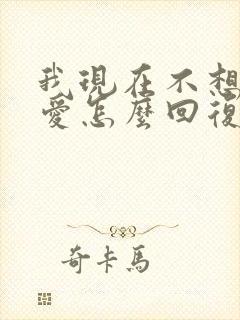 我現在不想
愛怎麼回復
奇卡馬